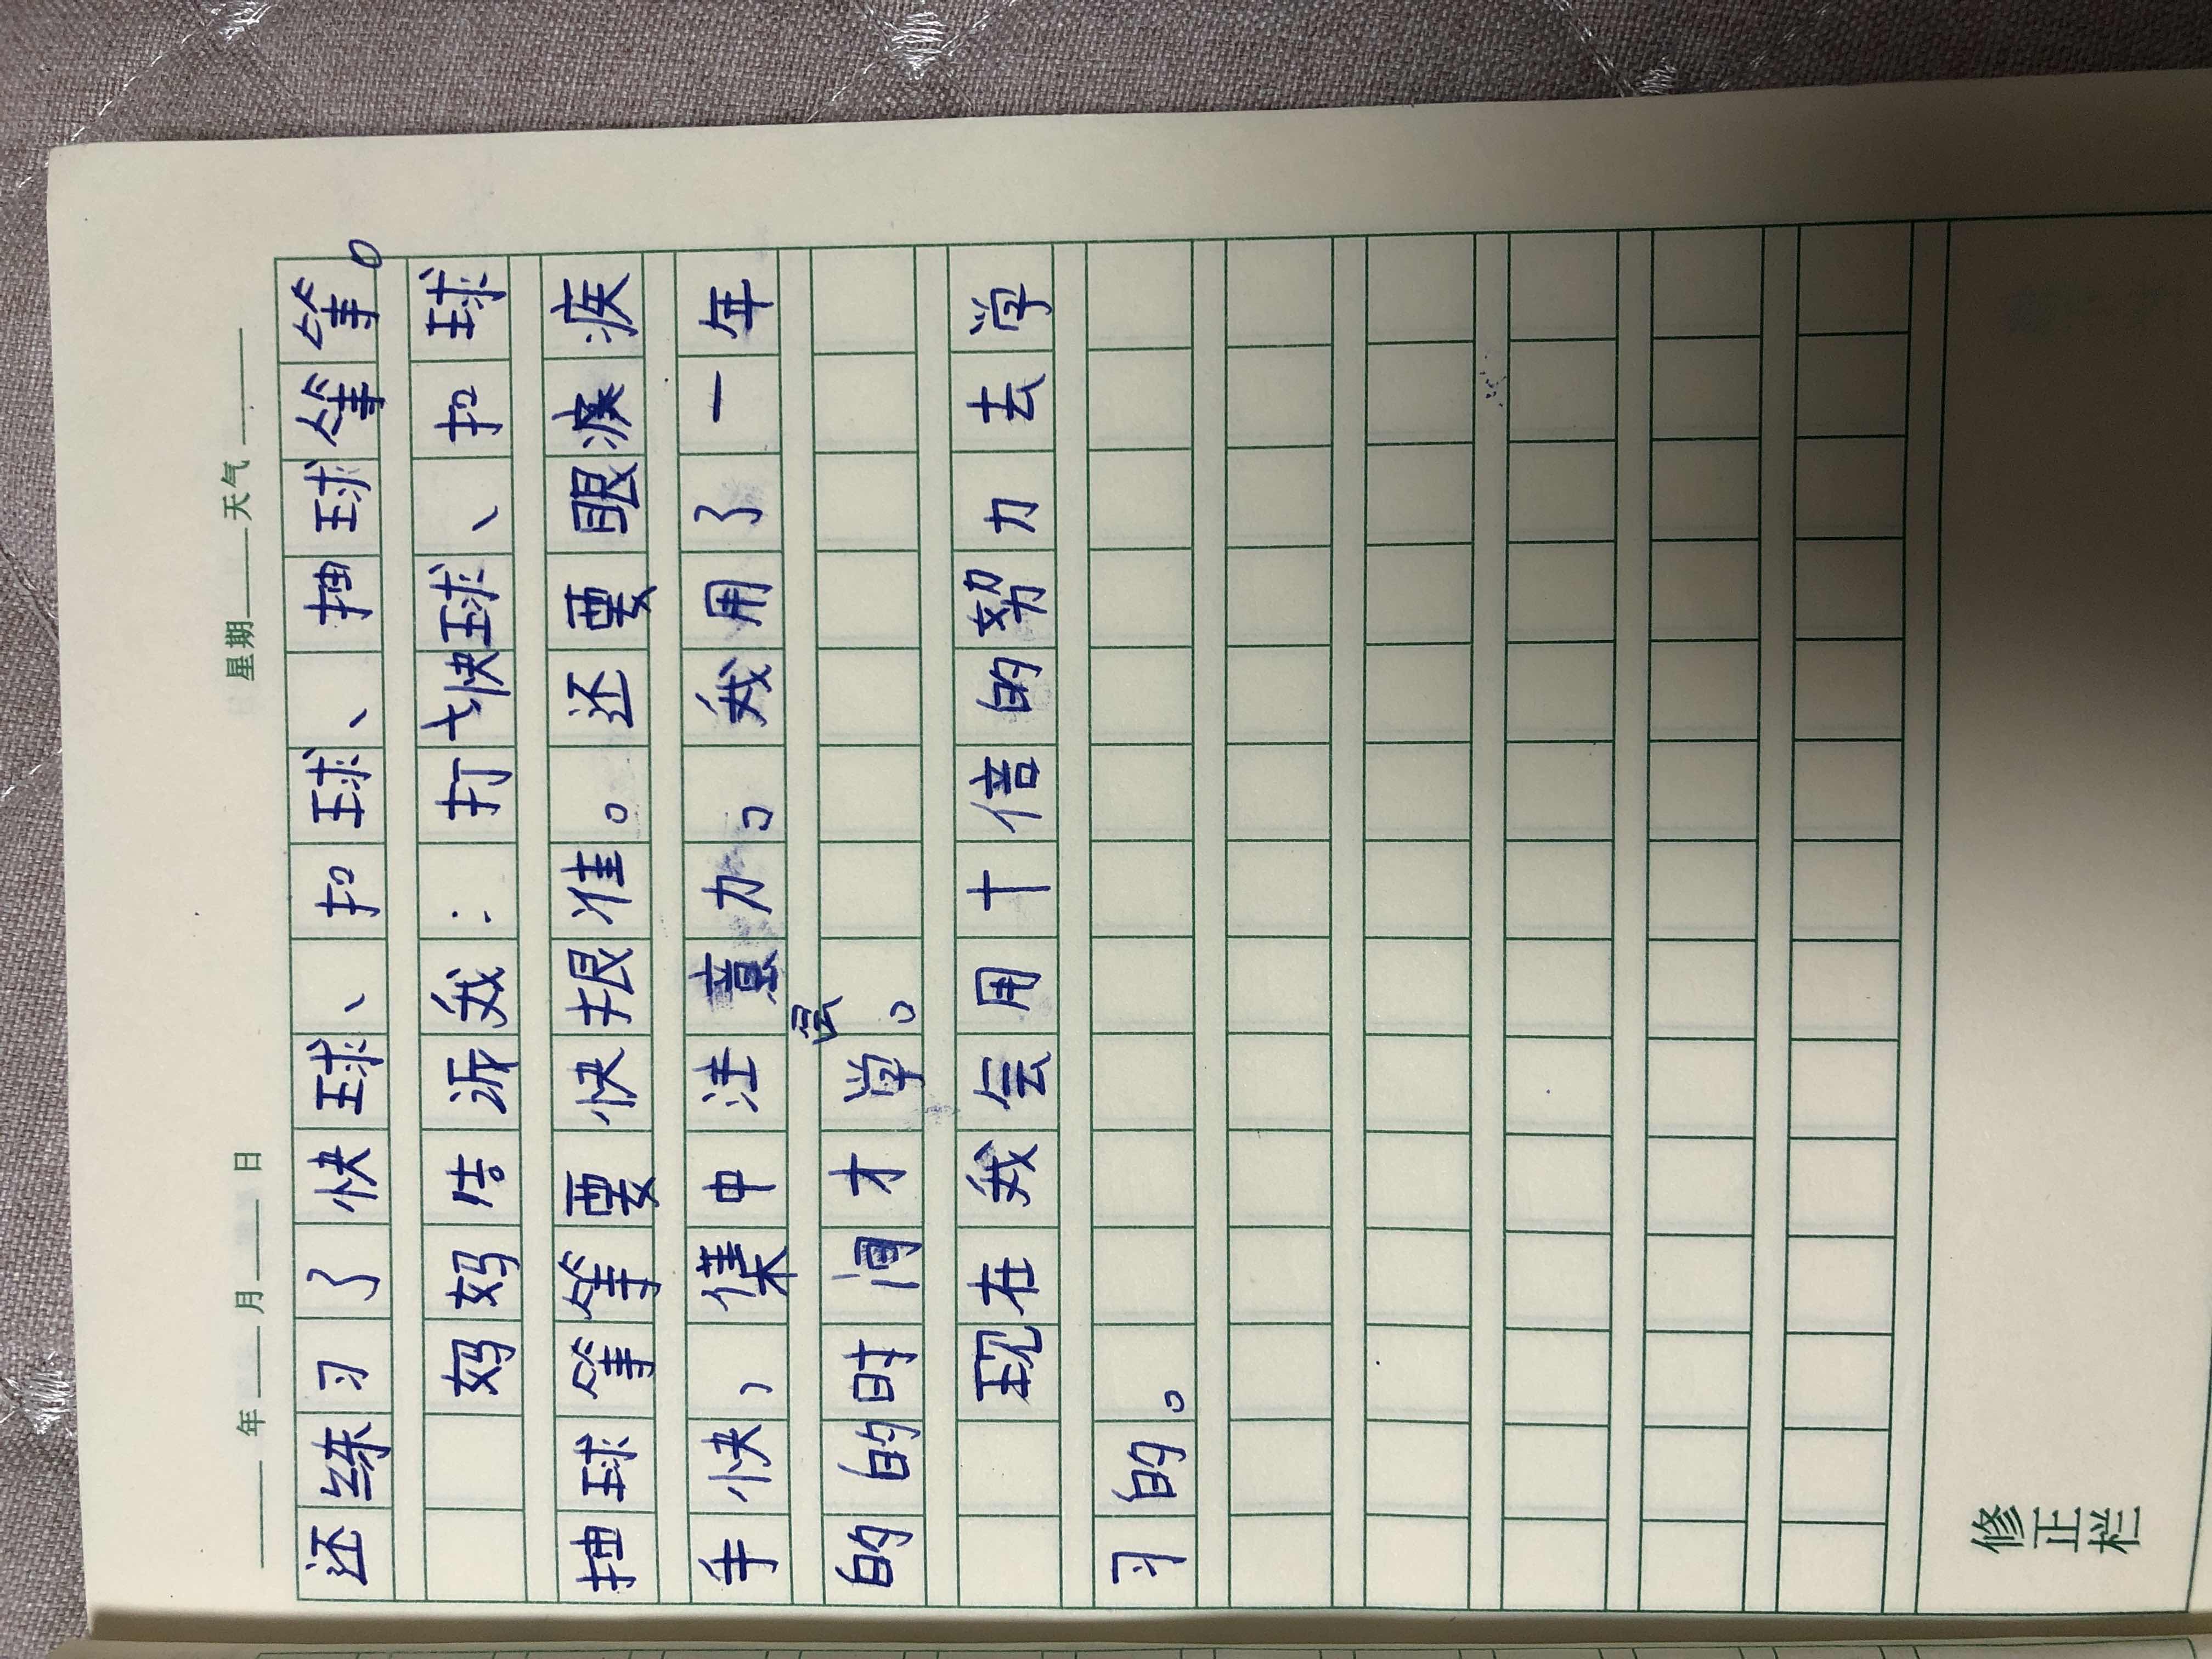 年 月 日 星期 天气
还练习了快球、扣球、抽球等等。
妈妈告诉我:打快球、扣球
抽球等等要快狠准。还要眼疾
手快,集中注意力。我用了一年
的的时间才学会。
现在我会用十倍的努力去学
习的。
修正栏